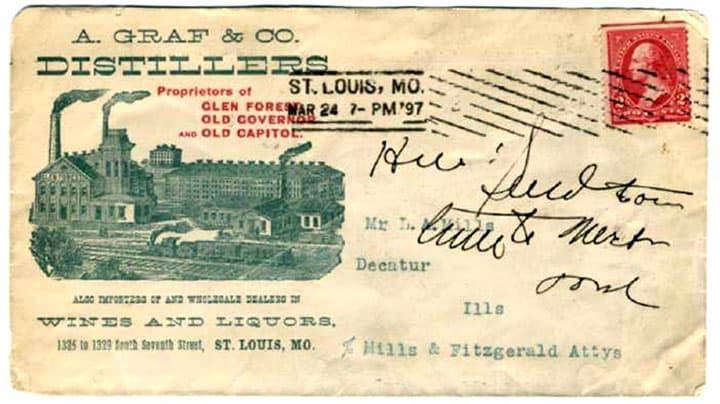 A. GRAF & CO.
DISTILLERS
Proprietors of
GLEN FOREST
OLD GOVERNOR
AND OLD CAPITOL.
ST. LOUIS, MO.
MAR 24 7-PM '97
Mr L. A. Mills
Decatur
Ills
% Mills & Fitzgerald Attys
ALSO IMPORTERS OF AND WHOLESALE DEALERS IN
WINES AND LIQUORS,
1325 to 1329 South Seventh Street, ST. LOUIS, MO.